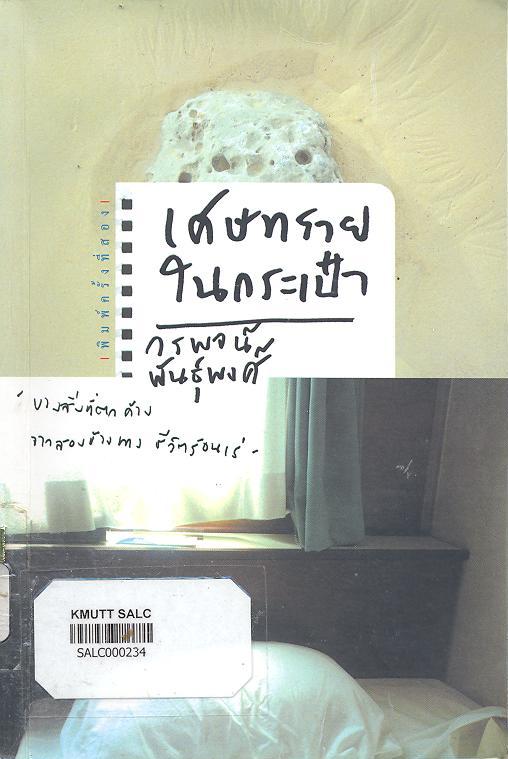 เศษทราย
ในกระเป๋า
วรพจน์
พันธุ์พงศ์
| พิมพ์ครั้งที่สอง |
" บางสิ่งที่ตกค้าง
จากสองข้างทาง ชีวิตร่อนเร่ "
KMUTT SALC
SALC000234